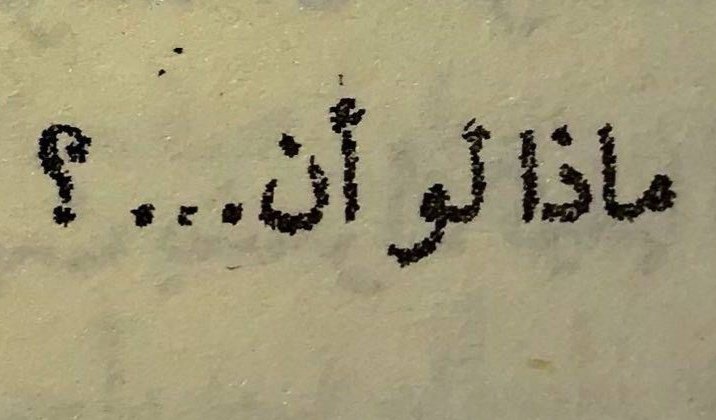 ماذا لو أن...؟